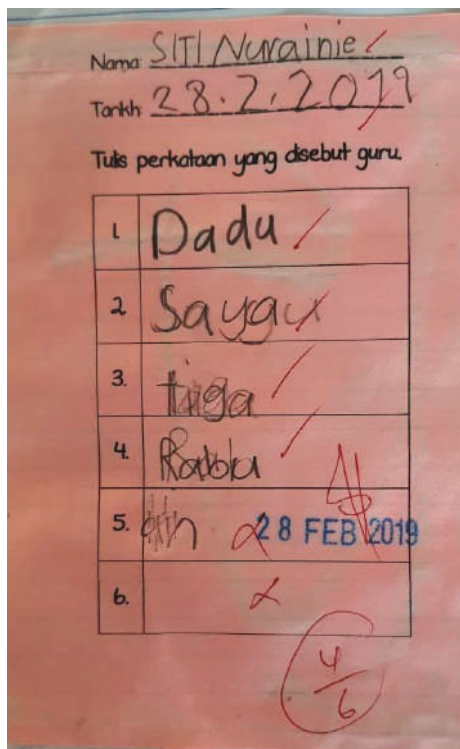 Nama: SITI Nurainie
Tarikh: 28.2.2019
Tulis perkataan yang disebut guru.
1. Dadu
2. Sayau
3. tiga
4. Rabu
5. 28 FEB 2019
6.
4/6